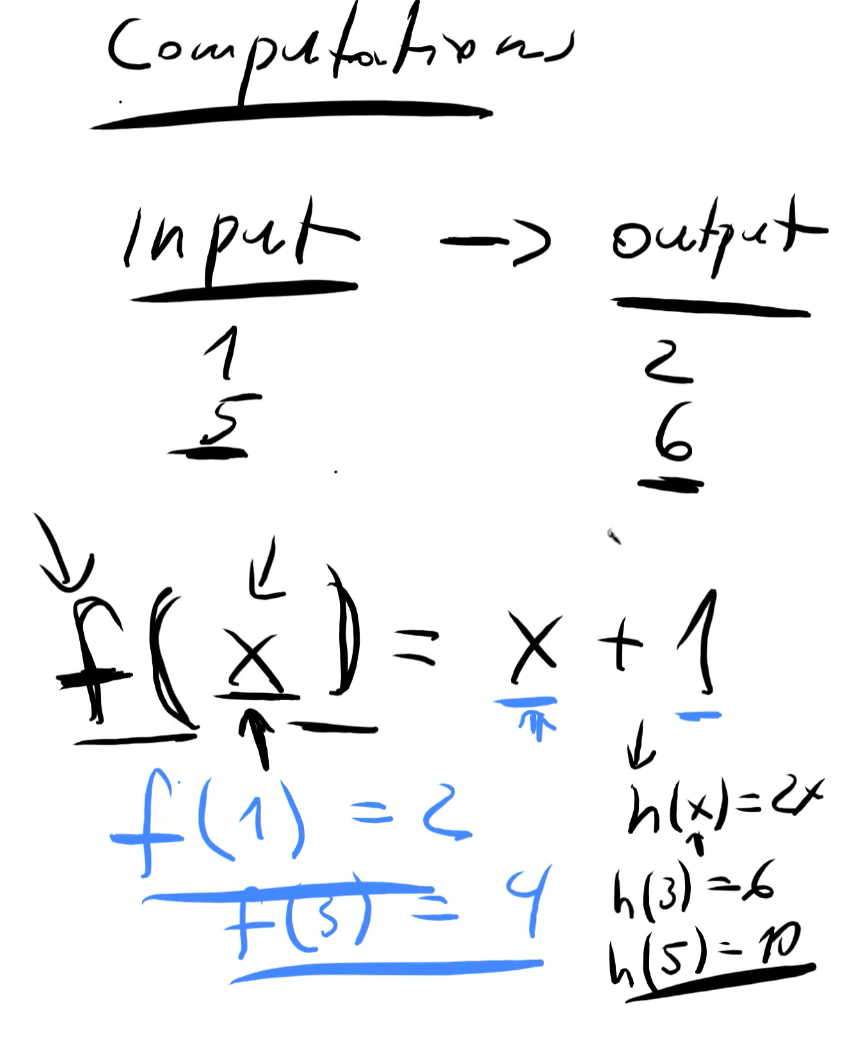 Computations
Input -> output
1 2
5 6
f(x) = x + 1
f(1) = 2
f(3) = 4
h(x) = 2x
h(3) = 6
h(5) = 10